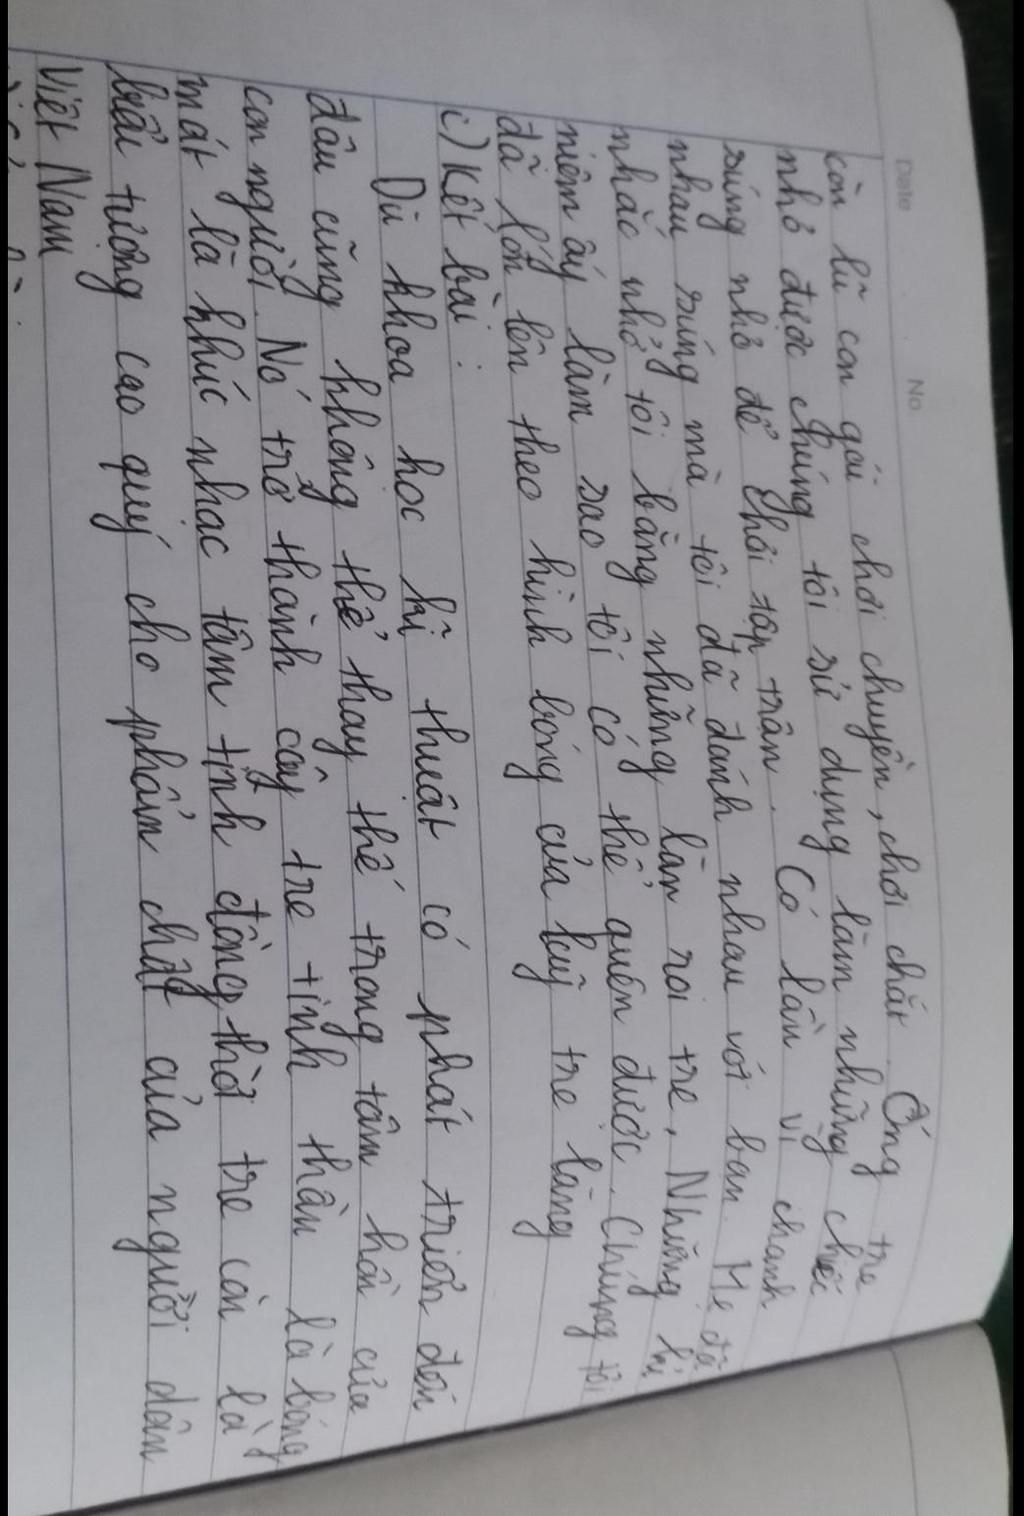 Date No
còn lũ con gái chơi chuyền, chơi chắt. Ống tre
nhỏ được chúng tôi sử dụng làm những chiếc
súng nhỏ để chơi tập trận. Có lần vì chanh
nhau súng mà tôi đã đánh nhau với bạn. Mẹ đã
nhắc nhở tôi bằng những lần roi tre. Những kỉ
niệm ấy làm sao tôi có thể quên được. Chúng tôi
đã lớn lên theo hình bóng của luỹ tre làng
c) Kết bài:
Dù khoa học kĩ thuật có phát triển đến
đâu cũng không thể thay thế trong tâm hồn của
con người. Nó trở thành cây tre tinh thần là bóng
mát là khúc nhạc tâm tình đồng thời tre còn là
biểu tượng cao quý cho phẩm chất của người dân
Việt Nam